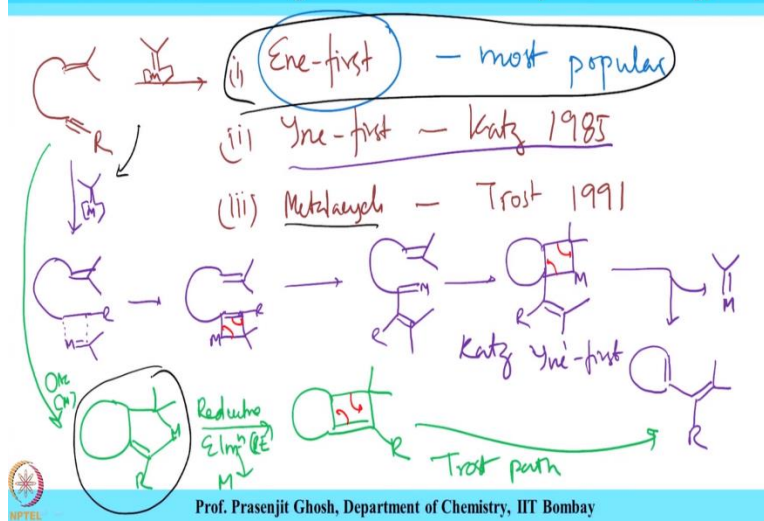 [M]
(i) Ene-first - most popular
R
(ii) Yne-first - Katz 1985
[M]
(iii) Metallacycle - Trost 1991
R
M
M
R
M
R
M
R
M
Katz Yne-first
R
M
R
Reductive
Elimn (RE)
M
R
Trost path
NPTEL
Prof. Prasenjit Ghosh, Department of Chemistry, IIT Bombay